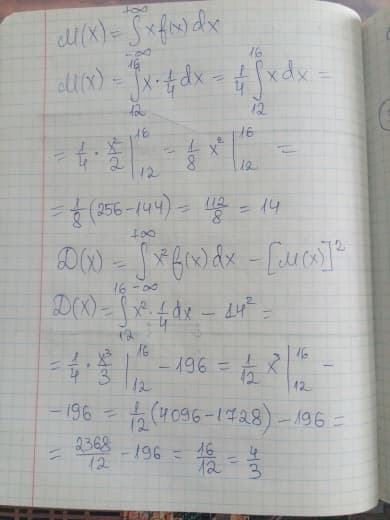 M(X) = ∫_{-∞}^{+∞} x f(x) dx
M(X) = ∫_{12}^{16} x · 1/4 dx = 1/4 ∫_{12}^{16} x dx =
= 1/4 · x²/2 |_{12}^{16} = 1/8 x² |_{12}^{16} =
= 1/8 (256-144) = 112/8 = 14
D(X) = ∫_{-∞}^{+∞} x² f(x) dx - [M(X)]²
D(X) = ∫_{12}^{16} x² · 1/4 dx - 14² =
= 1/4 · x³/3 |_{12}^{16} - 196 = 1/12 x³ |_{12}^{16} -
-196 = 1/12 (4096-1728) - 196 =
= 2368/12 - 196 = 16/12 = 4/3